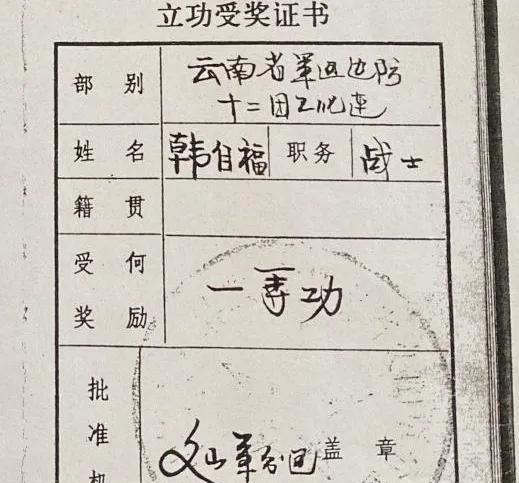 立功受奖证书
部别 云南省军区边防
十二团工化连
姓名 韩自福 职务 战士
籍贯
受何奖励 一等功
批准机 文山军分区 盖章